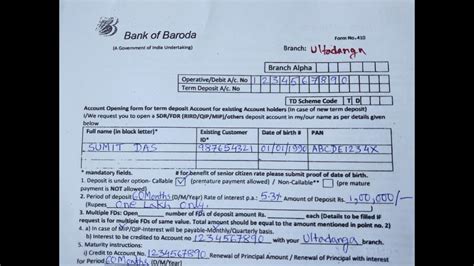 Bank of Baroda
(A Government of India Undertaking)
Form No.-410
Branch: Ultadanga
Branch Alpha
Operative/Debit A/c. No 1 2 3 4 5 6 7 8 9 0
Term Deposit A/c. No.
TD Scheme Code T D
Account Opening form for term deposit Account for existing Account holders (in case of new term deposit)
I/We request you to open a SDR/FDR (RIRD/QIP/MIP)/others deposit account in my/our name as per details given
below
Full name (in block letter)* Existing Customer ID* Date of birth # PAN
SUMIT DAS 987654321 01/01/1990 ABCDE1234X
* mandatory fields. # for benefit of senior citizen rate please submit proof of birth.
1. Deposit is under option- Callable ✓ (premature payment allowed) / Non-Callable** (pre mature
payment is NOT allowed)
2. Period of deposit 60 Months (D/M/Year) Rate of interest p.a.: 5.3% Amount of Deposit Rs. 1,00,000/-
(Rupees One Lakh Only)
3. Multiple FDs: Open number of FDs of deposit amount Rs. each (Details to be filled IF
request is for multiple FDs of same value. Total amount should be equal to the amount mentioned in point no. 2)
4. a) In case of MIP/QIP-Interest will be payable-Monthly/Quarterly basis.
b) Interest to be credited to Account no 1234567890 with your Ultadanga
5. Maturity instructions:
i) Credit to Account No. 1234567890 Renewal of Principal Amount / Renewal of Principal with interest
for Period 60 Months (D/M/Year)